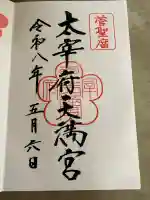 菅聖庿
太宰府天満宮
令和八年五月六日